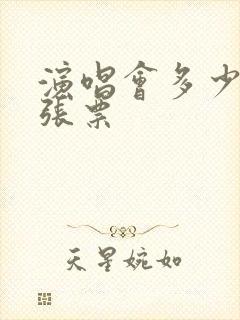 演唱會多少
張票
天星婉如